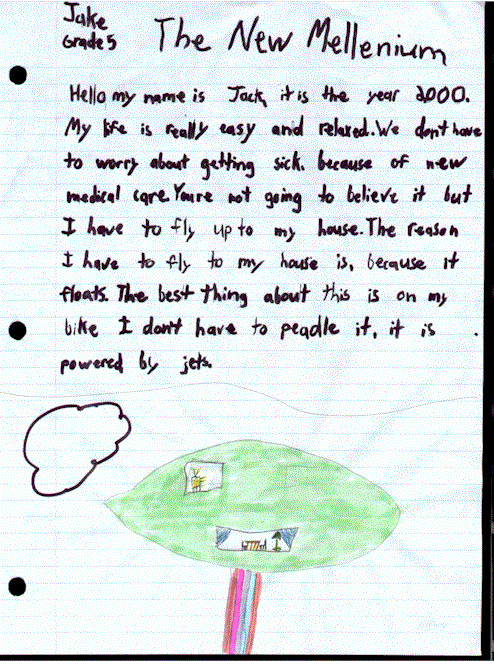 Jake
Grade 5
The New Mellenium
Hello my name is Jack, it is the year 2000.
My life is really easy and relaxed. We dont have
to worry about getting sick. because of new
medical care. Youre not going to believe it but
I have to fly up to my house. The reason
I have to fly to my house is, because it
floats. The best thing about this is on my
bike I don't have to peadle it, it is
powered by jets.